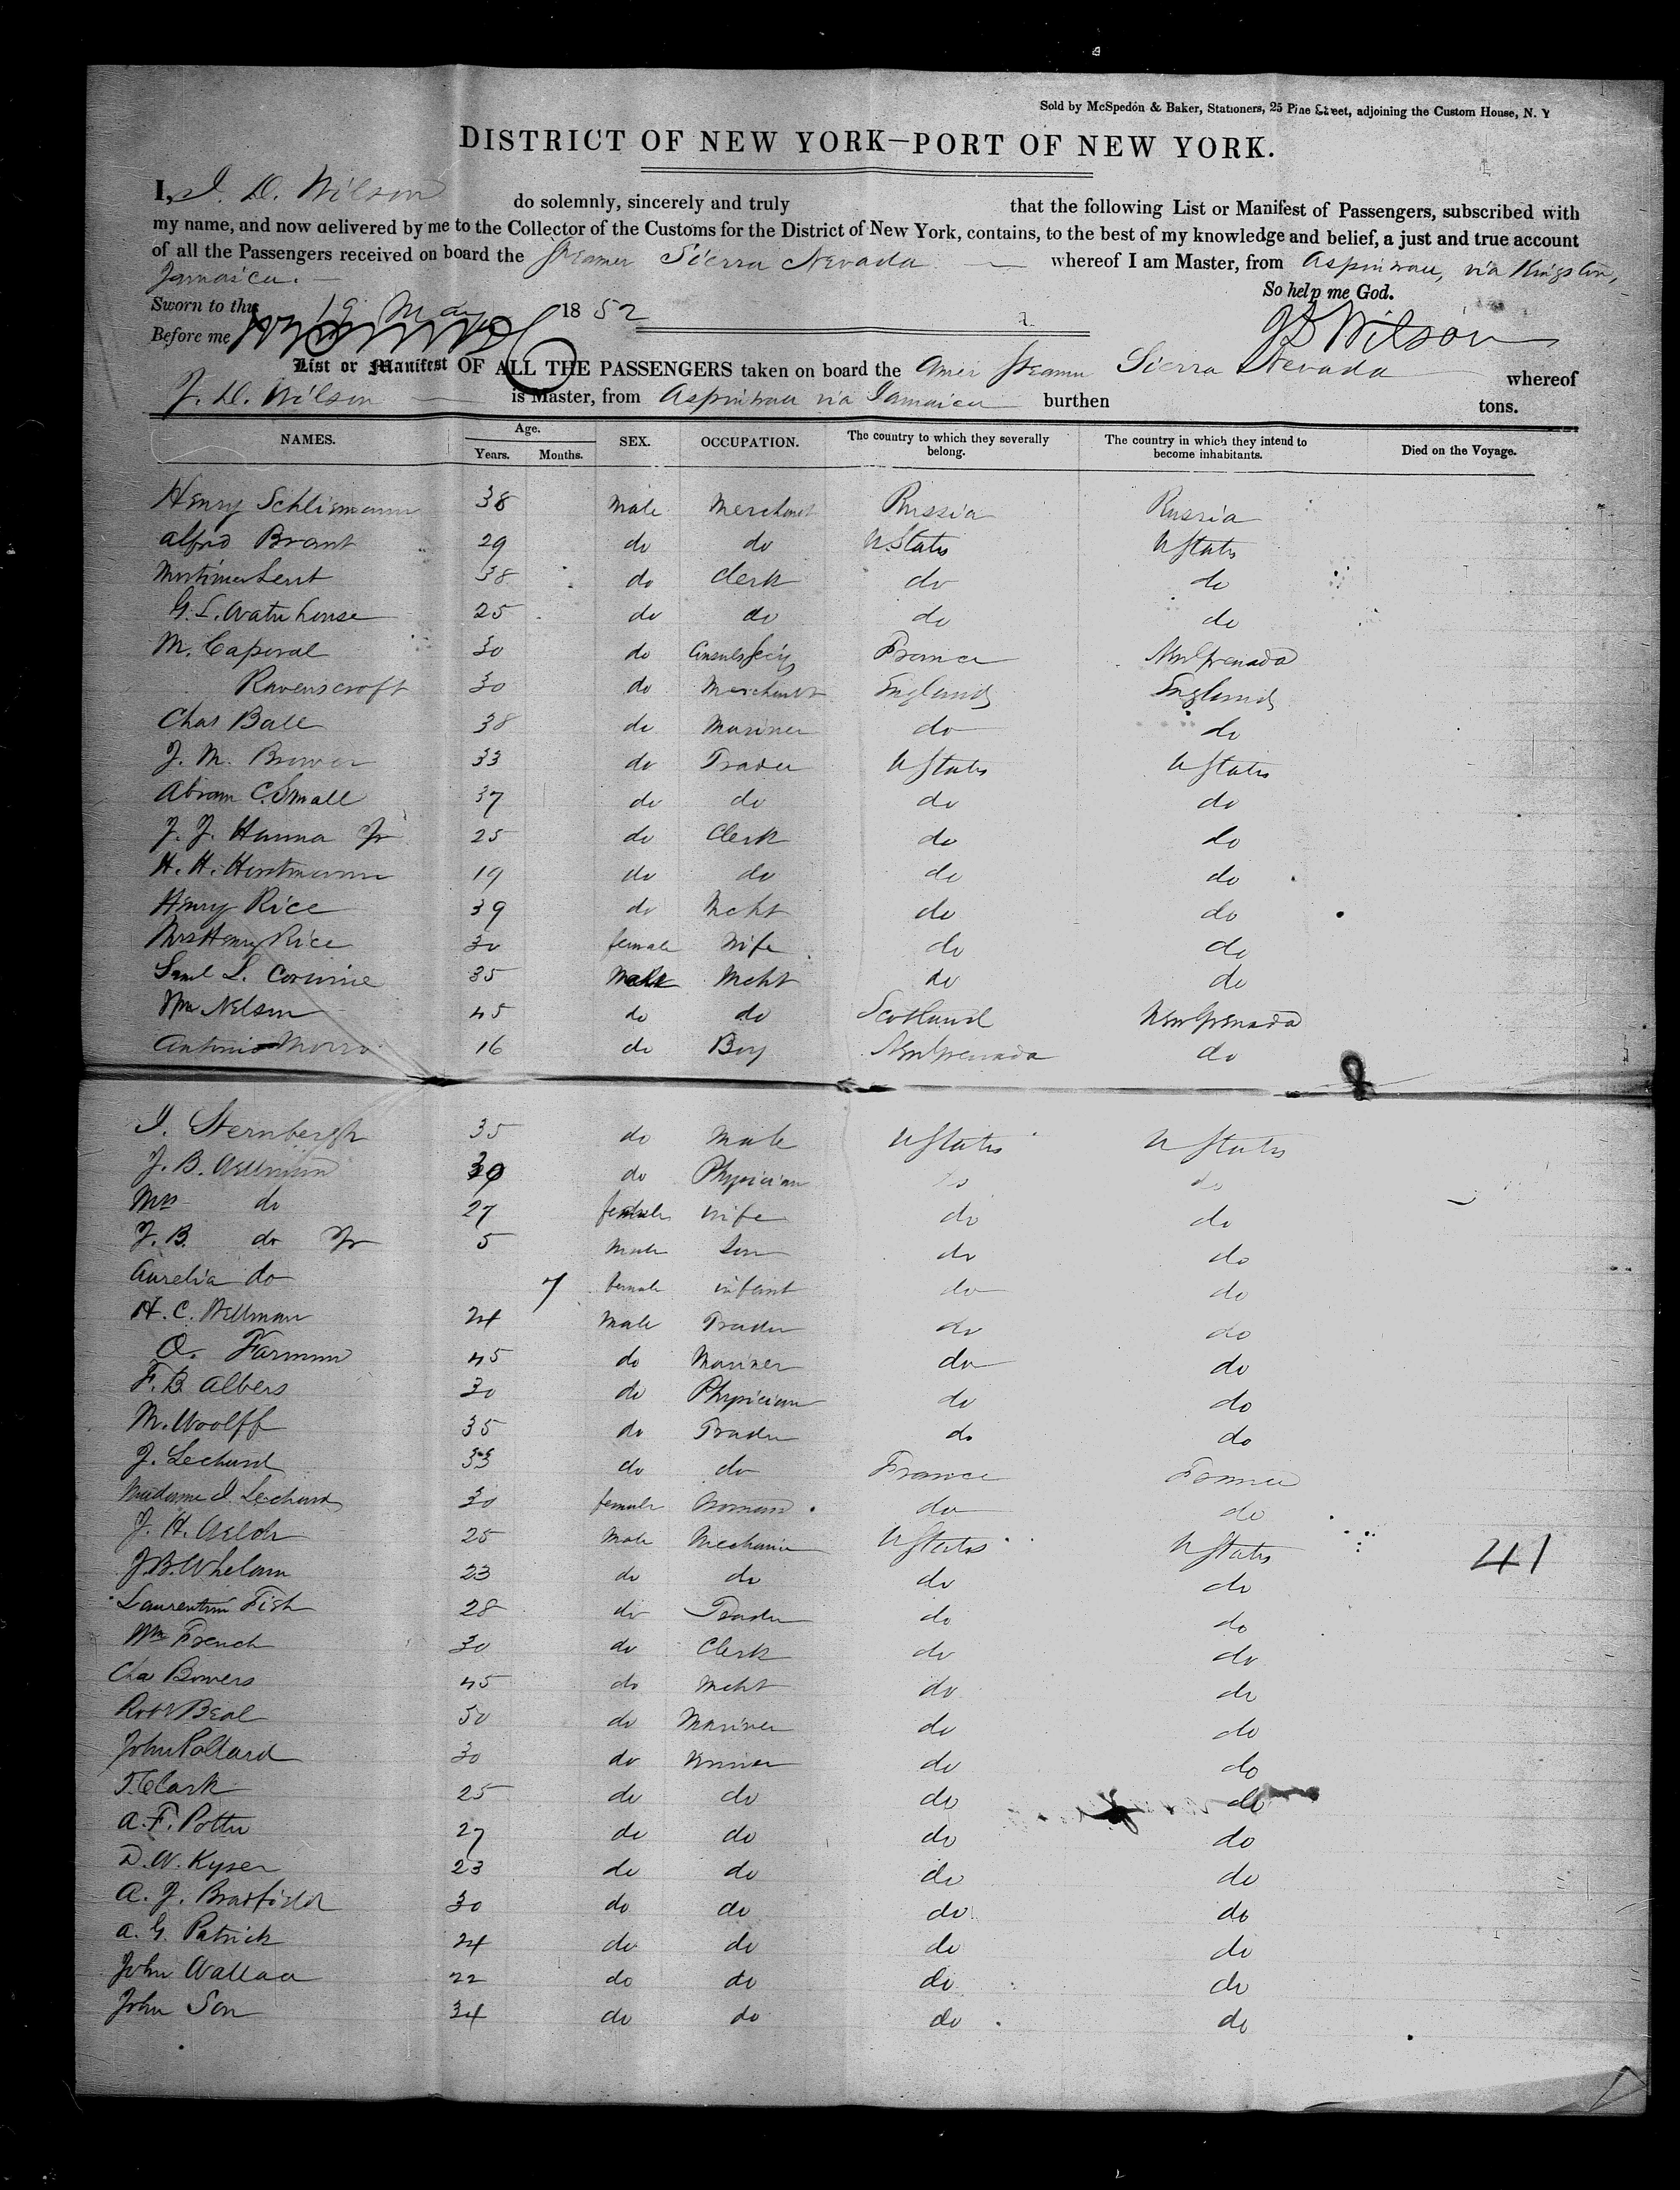 Sold by McSpedon & Baker, Stationers, 25 Pine Street, adjoining the Custom House, N. Y
DISTRICT OF NEW YORK—PORT OF NEW YORK.
I, J. D. Wilson do solemnly, sincerely and truly that the following List or Manifest of Passengers, subscribed with
my name, and now delivered by me to the Collector of the Customs for the District of New York, contains, to the best of my knowledge and belief, a just and true account
of all the Passengers received on board the Steamer Sierra Nevada whereof I am Master, from Aspinwau, via Kingston,
Jamaica.
So help me God.
Sworn to this 19 May 1852
Before me J D Wilson
List or Manifest OF ALL THE PASSENGERS taken on board the Amer Steamer Sierra Nevada whereof
J. D. Wilson is Master, from Aspinwau via Jamaica burthen tons.
NAMES. Age. Years. Months. SEX. OCCUPATION. The country to which they severally belong. The country in which they intend to become inhabitants. Died on the Voyage.
Henry Schliemann 38 Male Merchant Russia Russia
Alfred Brant 29 do do U States U States
Mortimer Lent 38 do Clerk do do
G. L. Waterhouse 25 do do do do
M. Caperal 30 do Consul Secy France New Grenada
Ravenscroft 30 do Merchant England England
Chas Ball 38 do Mariner do do
J. M. Brower 33 do Trader U States U States
Abram C. Small 37 do do do do
J. J. Hanna Jr 25 do Clerk do do
H. H. Horstmann 19 do do do do
Henry Rice 39 do Mcht do do
Mrs Henry Rice 30 female Wife do do
Saml L. Corwine 35 Male Mcht do do
Wm Nelson 45 do do Scotland New Grenada
Antonio Morro 16 do Boy New Grenada do
I. Sternbergh 35 do Male U States U States
J. B. 39 do Physician do do
Mrs do 27 female Wife do do
J. B. do Jr 5 Male Son do do
Aurelia do 7 female infant do do
H. C. Wellman 24 Male Trader do do
O. Farnum 45 do Mariner do do
F. B. Albers 30 do Physician do do
M. Woolff 35 do Trader do do
J. Lechard 33 do do France France
Madame J. Lechard 30 female Woman do do
J. H. Welch 25 Male Mechanic U States U States
J. B. Whelan 23 do do do do 41
Laurentine Fish 28 do Trader do do
Wm French 30 do Clerk do do
Cha Bowers 45 do Mcht do do
Robt Beal 50 do Mariner do do
John Pollard 30 do Miner do do
T. Clark 25 do do do do
A. F. Potter 27 do do do do
D. W. Kyser 23 do do do do
A. J. Bradfield 30 do do do do
A. G. Patrick 24 do do do do
John Wallace 22 do do do do
John Son 34 do do do do